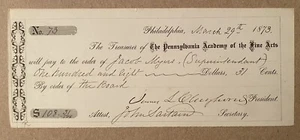 No. 73
Philadelphia, March 29th 1873.
The Treasurer of The Pennsylvania Academy of the Fine Arts
will pay to the order of Jacob Myers (Superintendent)
One hundred and eight Dollars, 31 Cents.
By order of the Board
President.
$108.31
Attest, John Sartain Secretary.